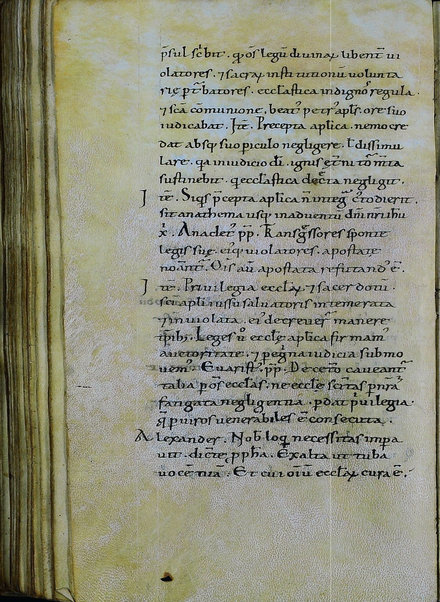 p̄sul scͥbit . qͦ os legū divinaꝝ libent̄ vi
olatores . ⁊ sacraꝝ institutionū volunta
rie ꝑt᷑batores . eccl̄astica indignoſ regula
⁊ scā comunione . beat᷒ petr᷒ apłs . ore suo
iudicabat . Jtē . Precepta ap̄lica . nemo cre
dat absq̨ suo piculo negligere . ł dissimu
lare . q̄a in iudicio dī . ignis et̄ni tōm̄ta
sustinebit . q̄ eccl̄astica dec̄ta negligit .
Jtē . Siq̄s p̄cepta ap̄lica n̄ integ̃ c᷒todierit .
sit anathema usq̨ in adventū dn̄i nr̄i ihū
xp̄ . Anaclet᷒ pp̄ . Transg̃ssores spont̄
legis sue . eiq̨ violatores . apostate
noīant᷑ . Om̄is aū apostata refutand᷒ ē .
Jtē . Privilegia ecclaꝝ . ⁊ sacerdotū .
scī apłi iussu salvatoris intemerata
⁊ inviolata . ei᷒ decrever̄ manere
tp̄ib; . Leges ū eccłe ap̄lica firmam᷒
auctoritate . ⁊ peg̃na iudicia submo
vem᷒ . Evarist᷒ . pp̄ . De cet̄o caveant᷑
talia p̄ os eccl̄as . ne eccłe
fatigata negligentia . pdat pͥvilegia .
q̄ p viros venerabiles ē consecuta .
Alexander . Nob̄ loq̄ necessitas impa
vit . dic̄te pp̄ha . Exalta ut tuba
vocē tuā . Et cui oīū ecclaꝝ cura ē .